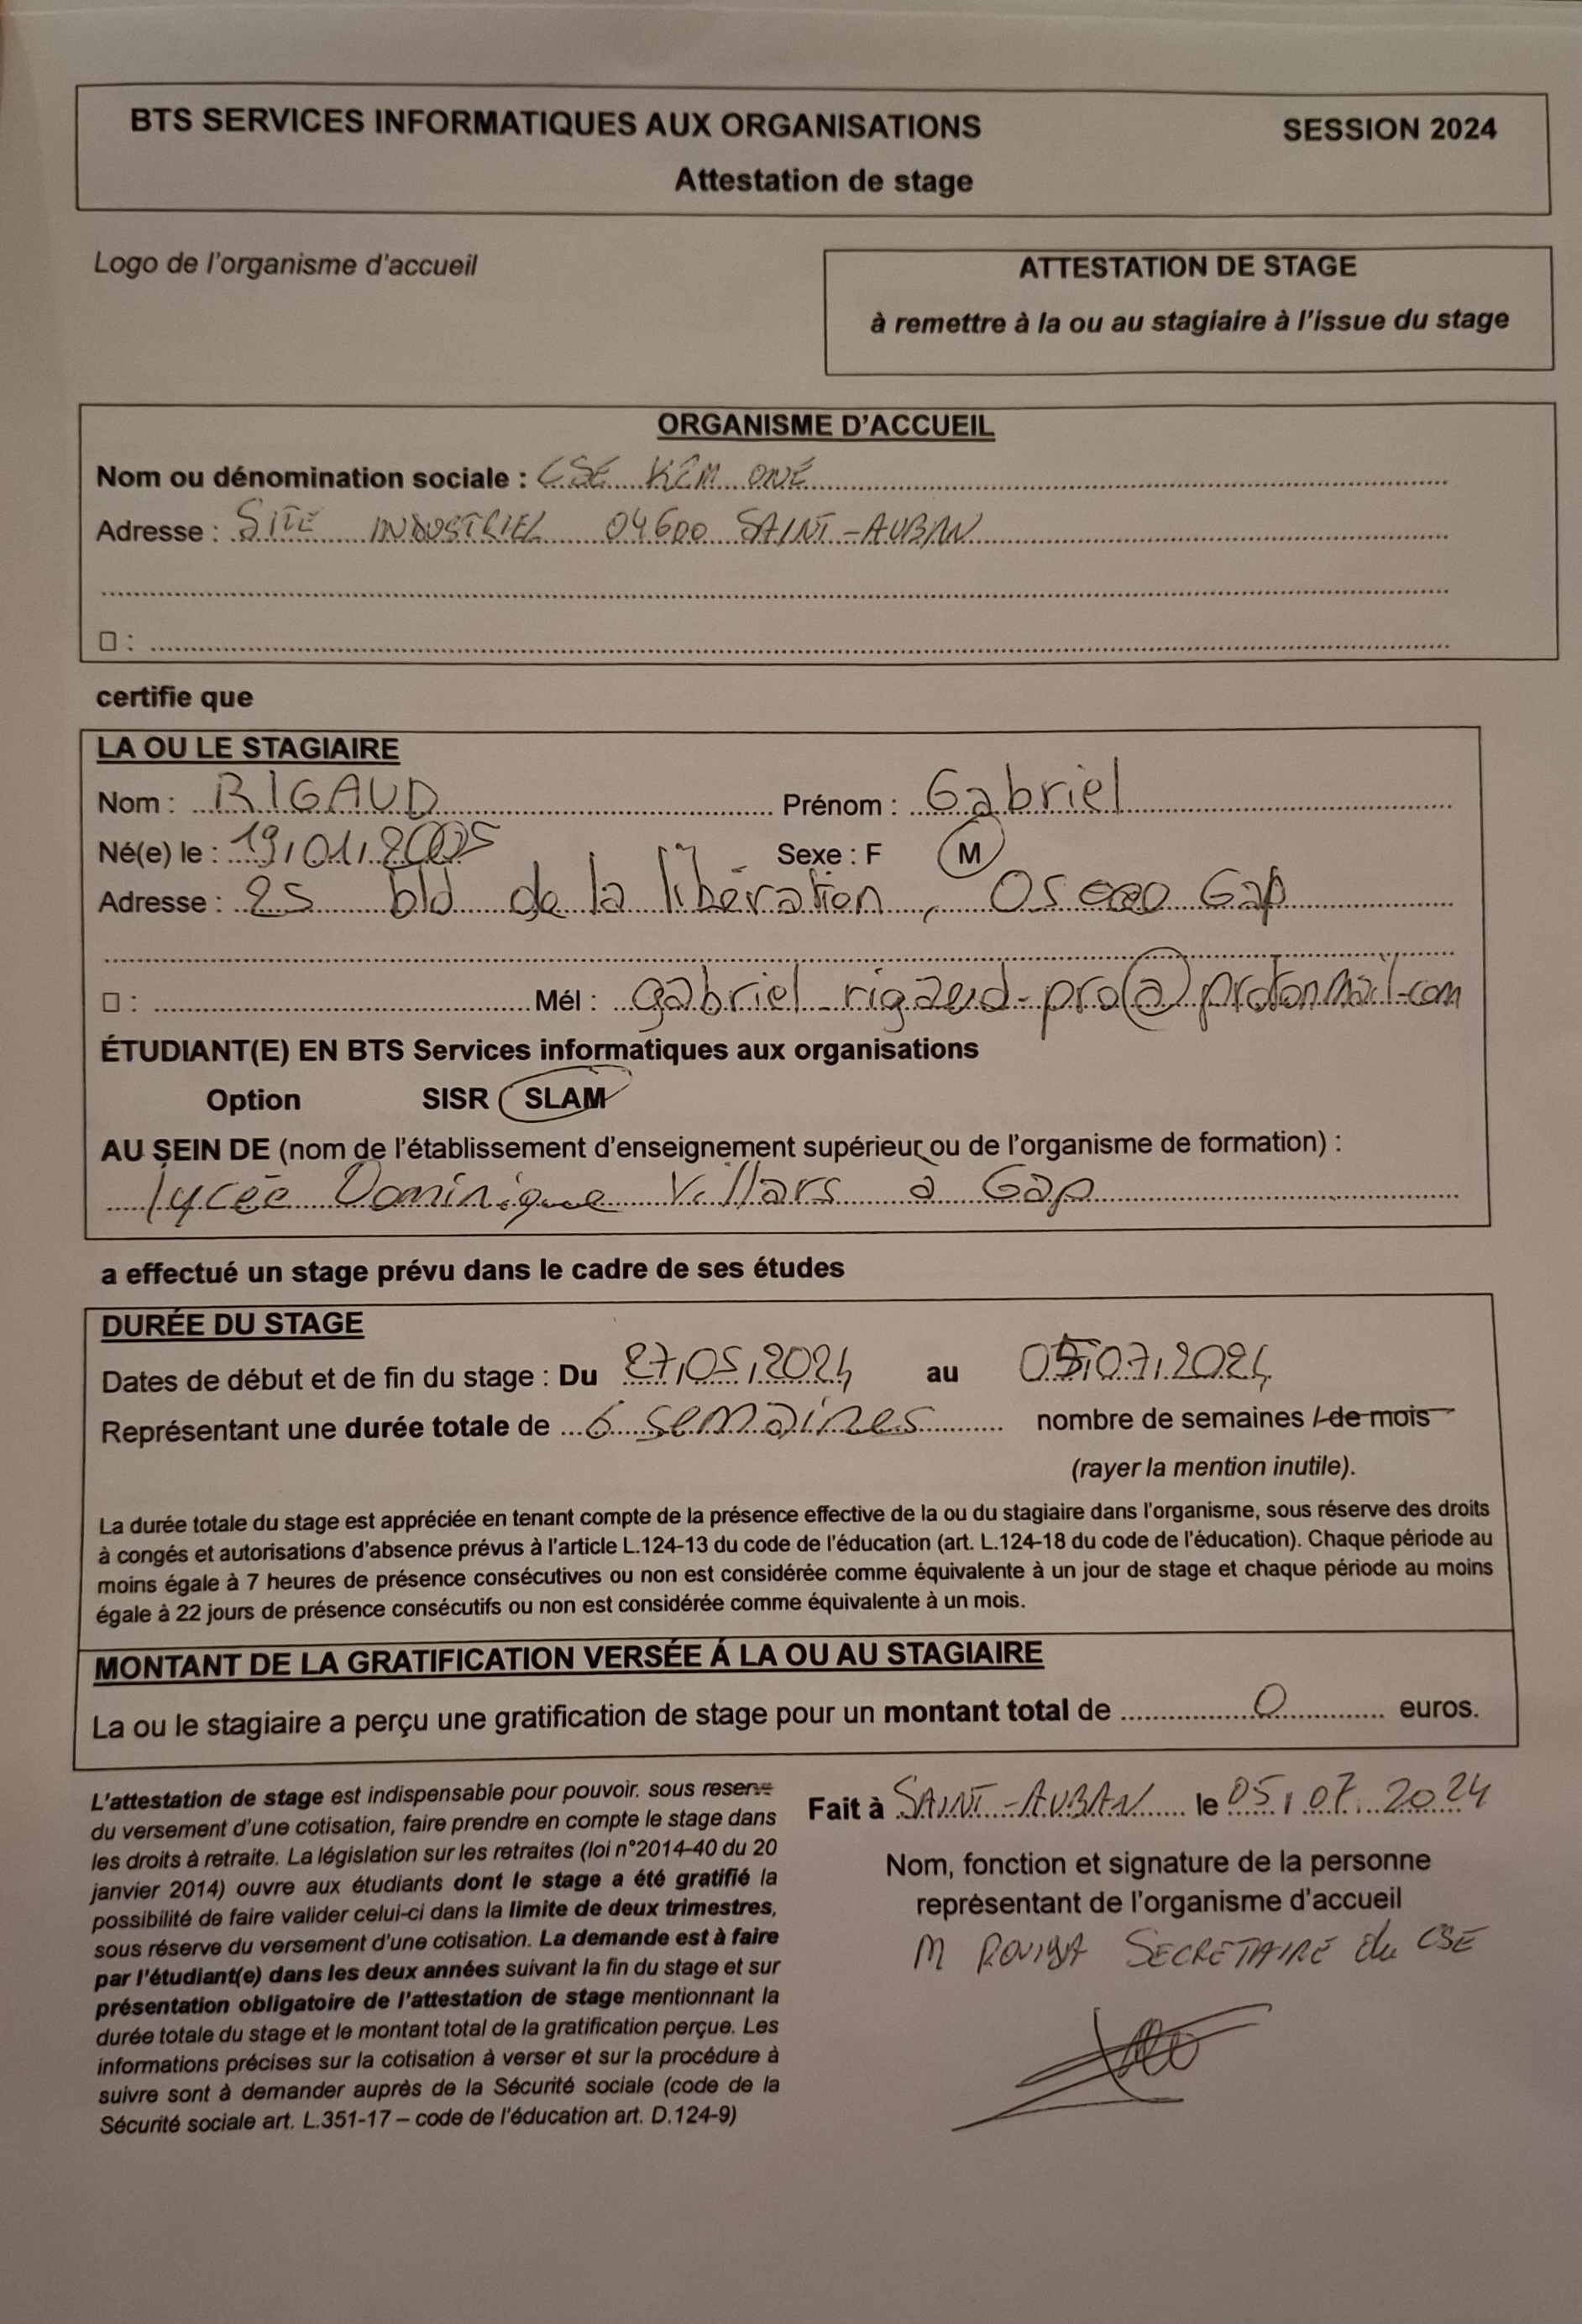 BTS SERVICES INFORMATIQUES AUX ORGANISATIONS SESSION 2024
Attestation de stage
Logo de l'organisme d'accueil
ATTESTATION DE STAGE
à remettre à la ou au stagiaire à l'issue du stage
ORGANISME D'ACCUEIL
Nom ou dénomination sociale : CSE KEM ONE
Adresse : SITE INDUSTRIEL 04600 SAINT-AUBAN
certifie que
LA OU LE STAGIAIRE
Nom : RIGAUD Prénom : Gabriel
Né(e) le : 19/01/2005 Sexe : F M
Adresse : 25 bld de la libération, 05000 Gap
Mél : gabriel-rigaud-pro@protonmail.com
ÉTUDIANT(E) EN BTS Services informatiques aux organisations
Option SISR SLAM
AU SEIN DE (nom de l'établissement d'enseignement supérieur ou de l'organisme de formation) :
lycée Dominique Villars à Gap
a effectué un stage prévu dans le cadre de ses études
DURÉE DU STAGE
Dates de début et de fin du stage : Du 27/05/2024 au 05/07/2024
Représentant une durée totale de 6 semaines nombre de semaines / de mois
(rayer la mention inutile).
La durée totale du stage est appréciée en tenant compte de la présence effective de la ou du stagiaire dans l'organisme, sous réserve des droits
à congés et autorisations d'absence prévus à l'article L.124-13 du code de l'éducation (art. L.124-18 du code de l'éducation). Chaque période au
moins égale à 7 heures de présence consécutives ou non est considérée comme équivalente à un jour de stage et chaque période au moins
égale à 22 jours de présence consécutifs ou non est considérée comme équivalente à un mois.
MONTANT DE LA GRATIFICATION VERSÉE Á LA OU AU STAGIAIRE
La ou le stagiaire a perçu une gratification de stage pour un montant total de 0 euros.
L'attestation de stage est indispensable pour pouvoir. sous reserve
du versement d'une cotisation, faire prendre en compte le stage dans
les droits à retraite. La législation sur les retraites (loi n°2014-40 du 20
janvier 2014) ouvre aux étudiants dont le stage a été gratifié la
possibilité de faire valider celui-ci dans la limite de deux trimestres,
sous réserve du versement d'une cotisation. La demande est à faire
par l'étudiant(e) dans les deux années suivant la fin du stage et sur
présentation obligatoire de l'attestation de stage mentionnant la
durée totale du stage et le montant total de la gratification perçue. Les
informations précises sur la cotisation à verser et sur la procédure à
suivre sont à demander auprès de la Sécurité sociale (code de la
Sécurité sociale art. L.351-17 – code de l'éducation art. D.124-9)
Fait à SAINT-AUBAN le 05/07/2024
Nom, fonction et signature de la personne
représentant de l'organisme d'accueil
M SECRETAIRE du CSE